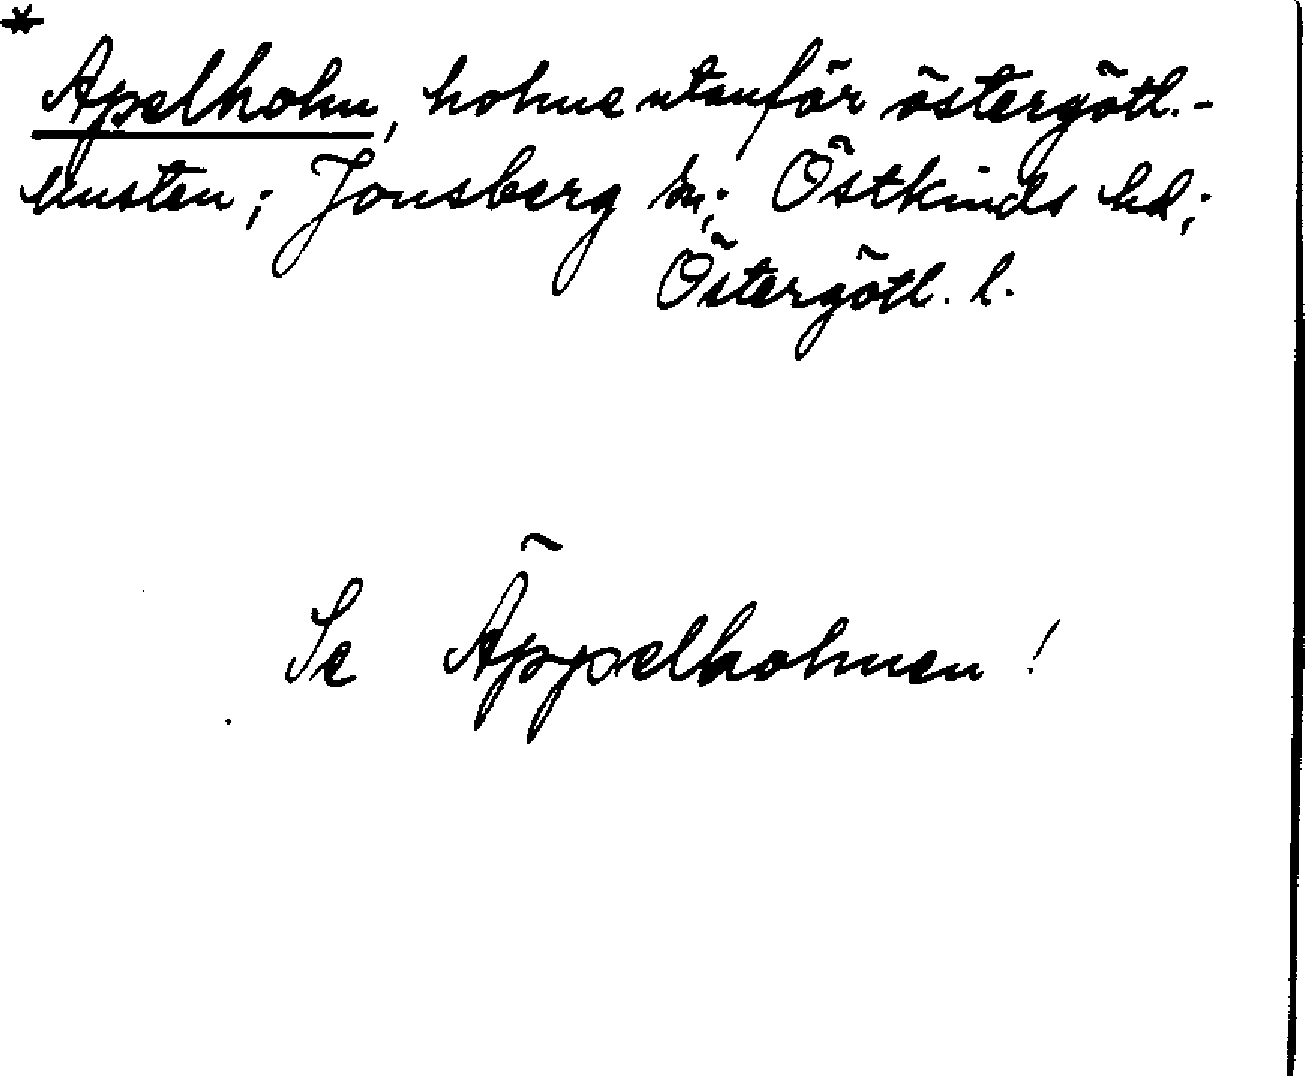 *
Apelholm, holme utanför östergötl.-
kusten; Jonsberg sn; Östkinds hd;
Östergötl. l.
Se Äppelholmen!